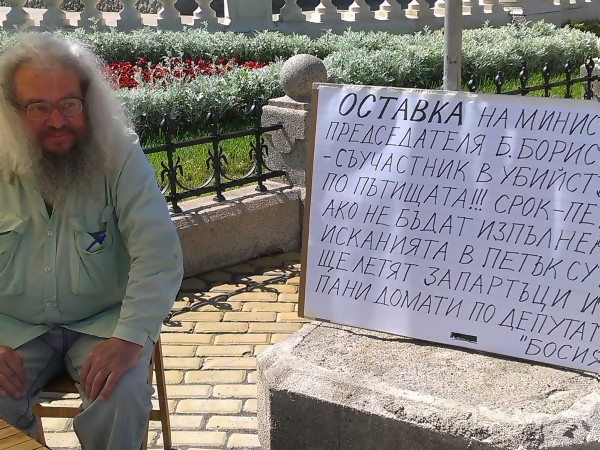 ОСТАВКА НА МИНИС
ПРЕДСЕДАТЕЛЯ Б.БОРИС
-СЪУЧАСТНИК В УБИЙСТ
ПО ПЪТИЩАТА!!! СРОК-ПЕ
АКО НЕ БЪДАТ ИЗПЪЛНЕ
ИСКАНИЯТА В ПЕТЪК СУ
ЩЕ ЛЕТЯТ ЗАПАРТЪЦИ И
ПАНИ ДОМАТИ ПО ДЕПУТАТ
"БОСИЯ